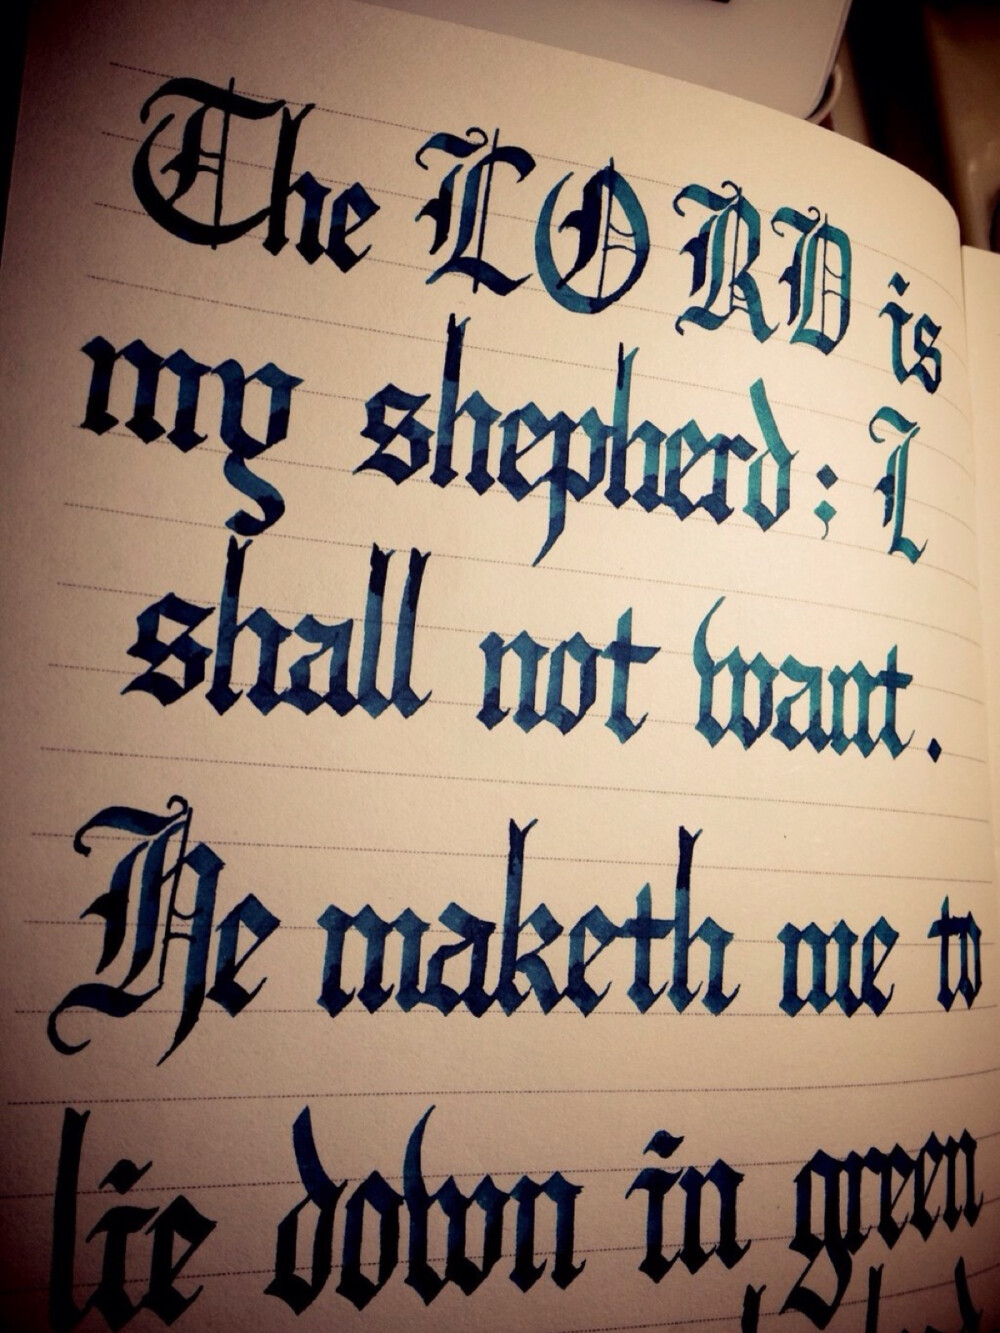 The LORD is
my shepherd; I
shall not want.
He maketh me to
lie down in green